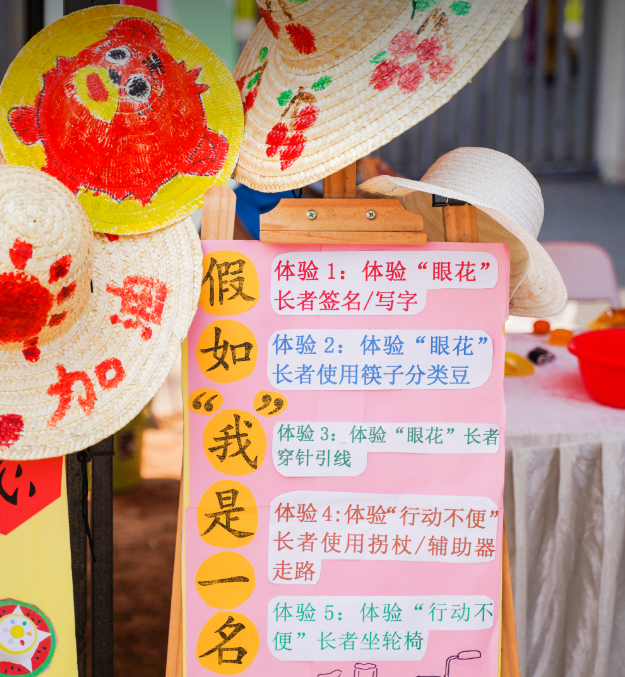 假
如
“我”
是
一
名
体验 1：体验“眼花”
长者签名/写字
体验 2：体验“眼花”
长者使用筷子分类豆
体验 3：体验“眼花”长者
穿针引线
体验 4:体验“行动不便”
长者使用拐杖/辅助器
走路
体验 5：体验“行动不
便”长者坐轮椅
加